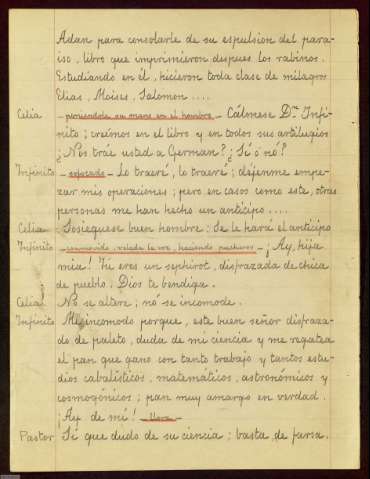 Adan para consolarle de su espulsion del para-
iso, libro que imprimieron despues los rabinos.
Estudiando en él, hicieron toda clase de milagros
Elias, Moises, Salomon ....
Celia — poniendole su mano en el hombro — Cálmese Dn. Infi-
nito; creémos en el libro y en todos sus artilugios
¿Nos tráe usted a German? ¿Si ó nó?
Infinito — sofocado — Lo traeré, lo traeré; déjenme empe-
zar mis operaciones; pero en casos como este, otras
personas me han hecho un anticipo ....
Celia Sosieguese buen hombre; Se le hará el anticipo
Infinito — conmovido, velada la voz, haciendo pucheros — ¡Ay, hija
mia! Tú eres un sephirot, disfrazada de chica
de pueblo; Dios te bendiga.
Celia No se altere; nó se incomode.
Infinito Me incomodo porque, este buen señor disfraza-
do de paleto, duda de mi ciencia y me regatea
el pan que gano con tanto trabajo y tantos estu-
dios cabalísticos, matemáticos, astronómicos y
cosmogónicos; pan muy amargo en verdad.
¡Ay de mi! — llora —
Pastor Sí que dudo de su ciencia; basta de farsa.